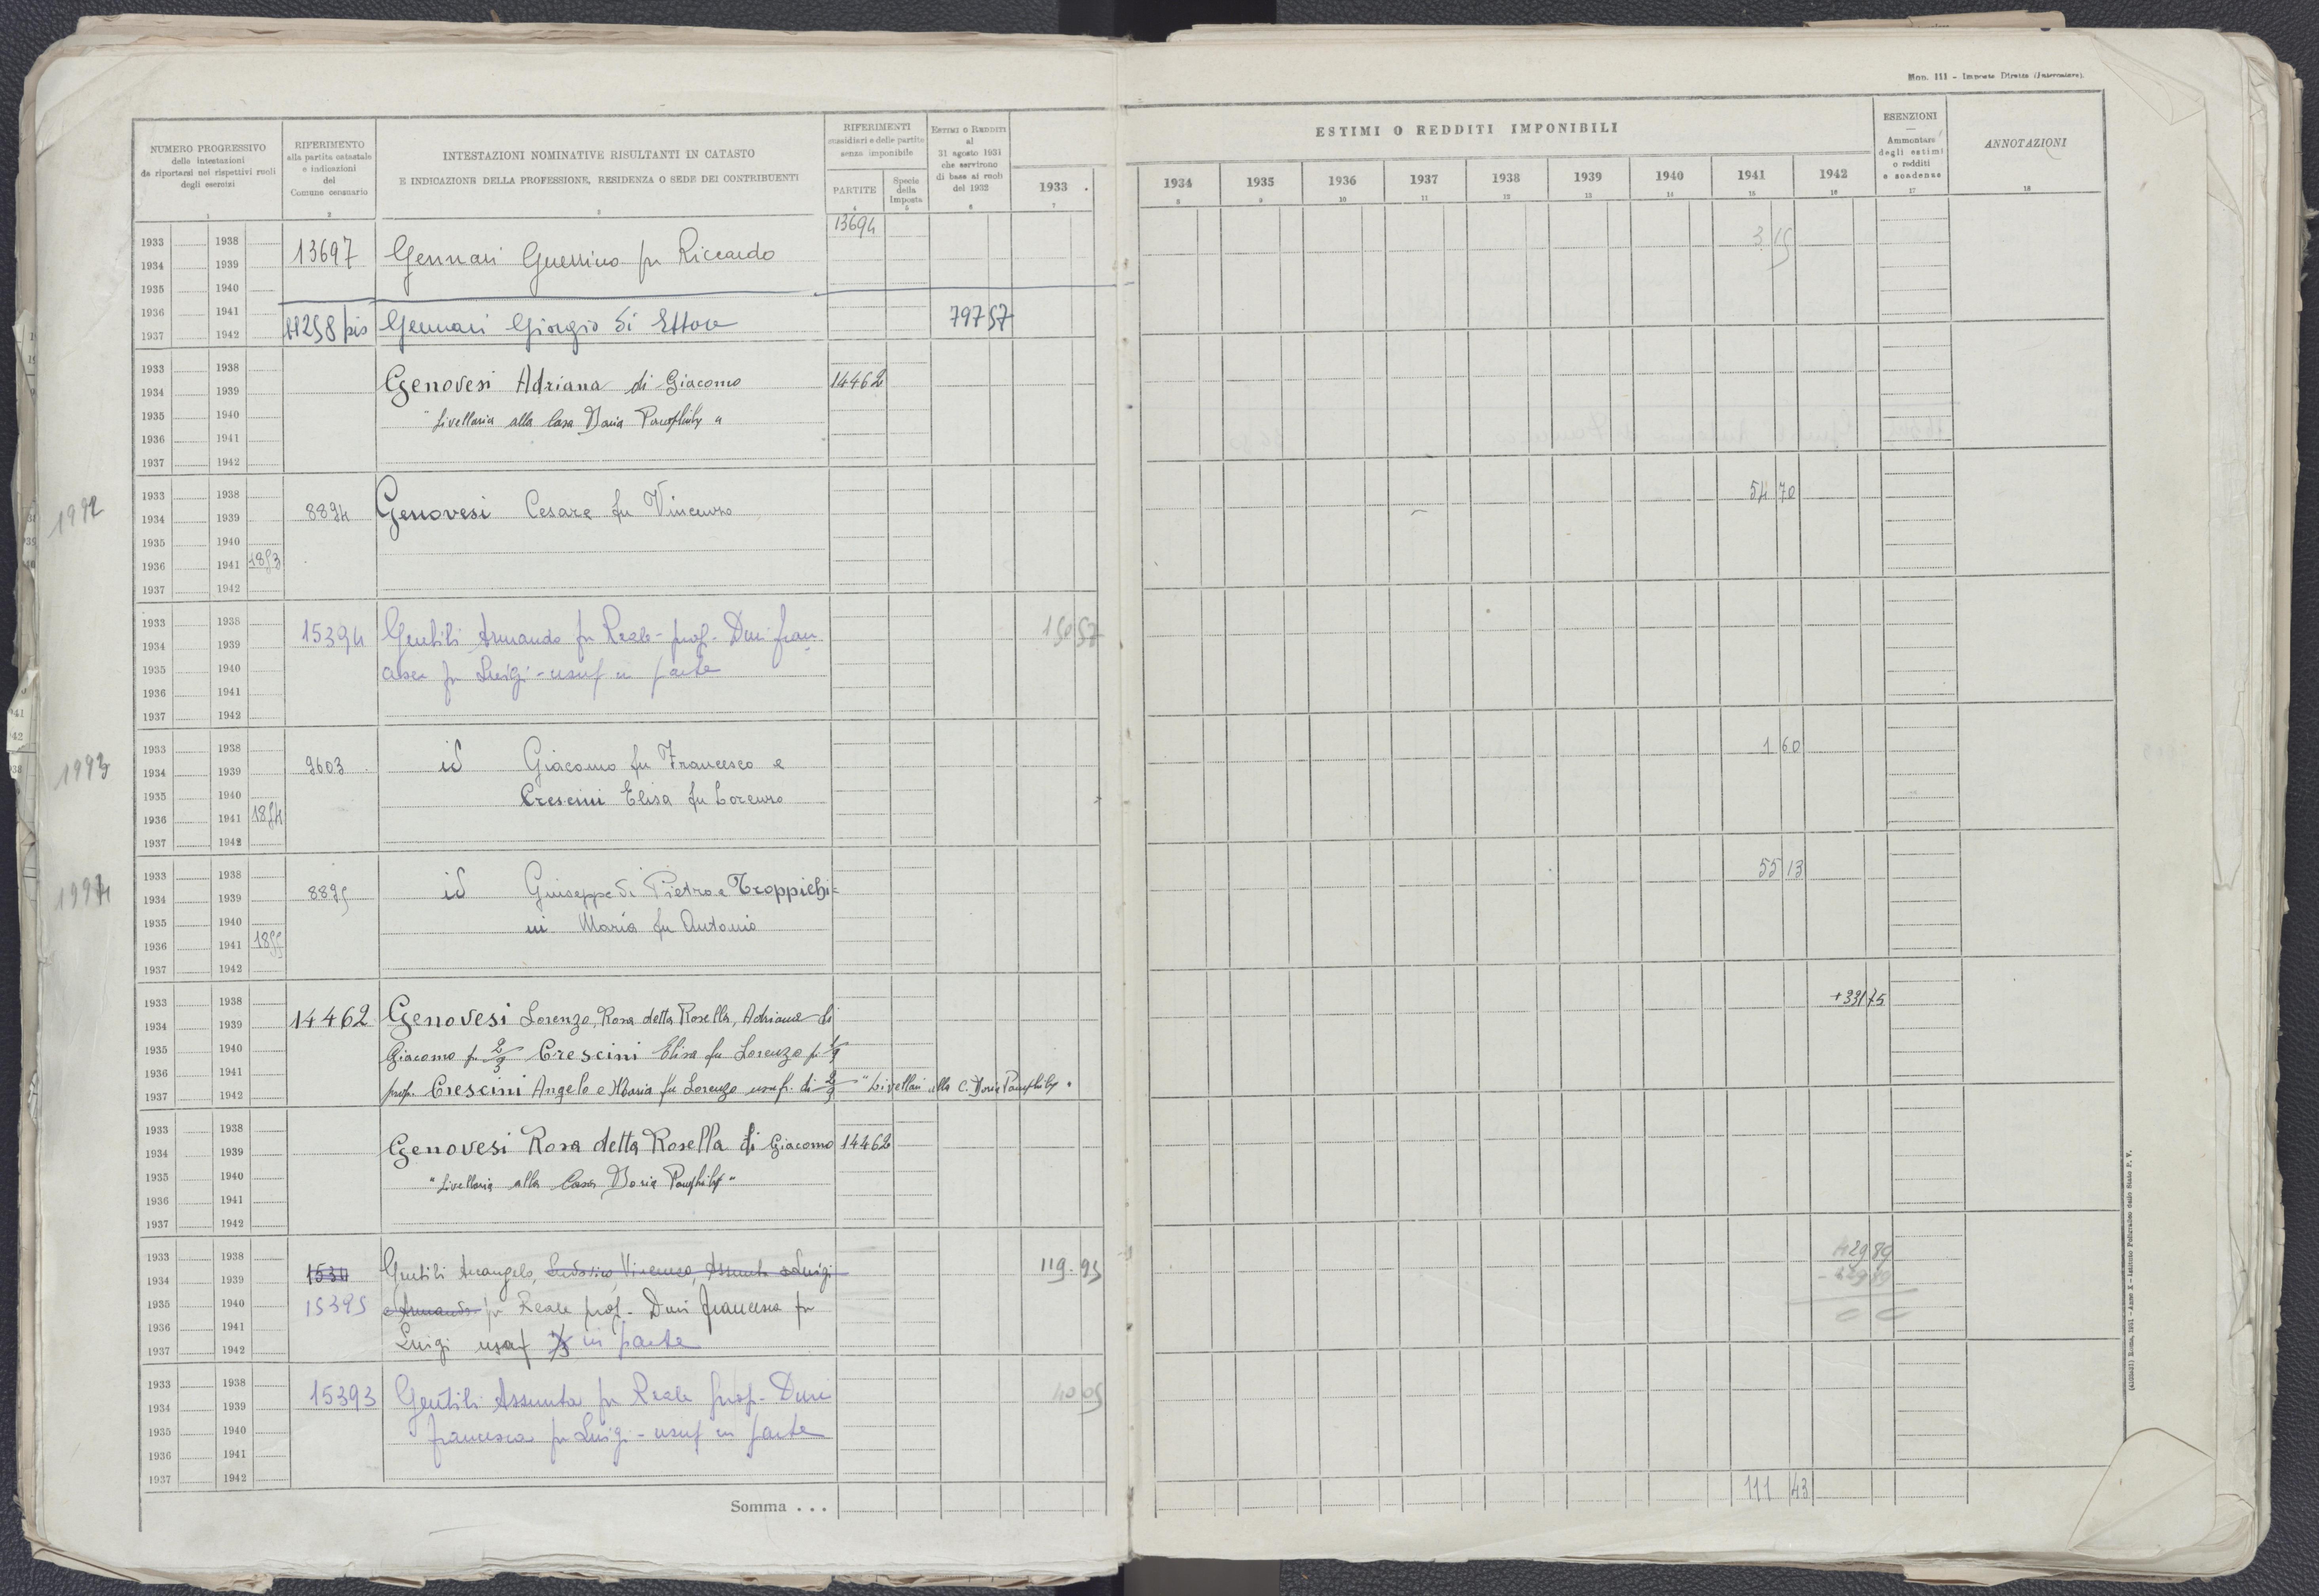 Mod. 111 - Imposte Dirette (Intercalare).
NUMERO PROGRESSIVO
delle intestazioni
da riportarsi nei rispettivi ruoli
degli esercizi
1
RIFERIMENTO
alla partita catastale
e indicazioni
del
Comune censuario
2
INTESTAZIONI NOMINATIVE RISULTANTI IN CATASTO
E INDICAZIONE DELLA PROFESSIONE, RESIDENZA O SEDE DEI CONTRIBUENTI
3
RIFERIMENTI
sussidiari e delle partite
senza imponibile
PARTITE
4
Specie
della
Imposta
5
ESTIMI O REDDITI
al
31 agosto 1931
che servirono
di base ai ruoli
del 1932
6
ESTIMI O REDDITI IMPONIBILI
1933
7
1934
8
1935
9
1936
10
1937
11
1938
12
1939
13
1940
14
1941
15
1942
16
ESENZIONI
—
Ammontare
degli estimi
o redditi
e scadenze
17
ANNOTAZIONI
18
13694
1933 1938
1934 1939
1935 1940
1936 1941
1937 1942
13697 Gennari Guerrino fu Riccardo 3 15
11258 bis Gennari Giorgio di Ettore 797 57
1933 1938
1934 1939
1935 1940
1936 1941
1937 1942
Genovesi Adriana di Giacomo 14462
"Livellaria alla Casa Doria Pamphily"
1992
1933 1938
1934 1939
1935 1940
1936 1941 1853
1937 1942
8894 Genovesi Cesare fu Vincenzo 54 70
1933 1938
1934 1939
1935 1940
1936 1941
1937 1942
15394 Gentili Armando fu Reale - prop. - Duri Fran
cesca fu Luigi - usuf in parte
1993
1933 1938
1934 1939
1935 1940
1936 1941 1854
1937 1942
9603 id Giacomo fu Francesco e 1 60
Crescini Elisa fu Lorenzo
1994
1933 1938
1934 1939
1935 1940
1936 1941 1855
1937 1942
8895 id Giuseppe di Pietro e Troppichi- 55 13
ni Maria fu Antonio
1933 1938
1934 1939
1935 1940
1936 1941
1937 1942
14462 Genovesi Lorenzo, Rosa detta Rosella, Adriana di +331 75
Giacomo p. 2/3 Crescini Elisa fu Lorenzo p. 1/3
prop. Crescini Angelo e Maria fu Lorenzo usufr. di 2/3 "Livellari alla C. Doria Pamphily"
1933 1938
1934 1939
1935 1940
1936 1941
1937 1942
Genovesi Rosa detta Rosella di Giacomo 14462
"Livellaria alla Casa Doria Pamphily"
1933 1938
1934 1939
1935 1940
1936 1941
1937 1942
Gentili Arcangelo, Ludovico, Vincenzo, Assunta Luigi 119.95
15395 e Armando fu Reale prop. Duri Francesca fu
Luigi usuf in parte
1933 1938
1934 1939
1935 1940
1936 1941
1937 1942
15393 Gentili Assunta fu Reale prop. - Duri 40 05
Francesca fu Luigi - usuf in parte
Somma . . . 111 43